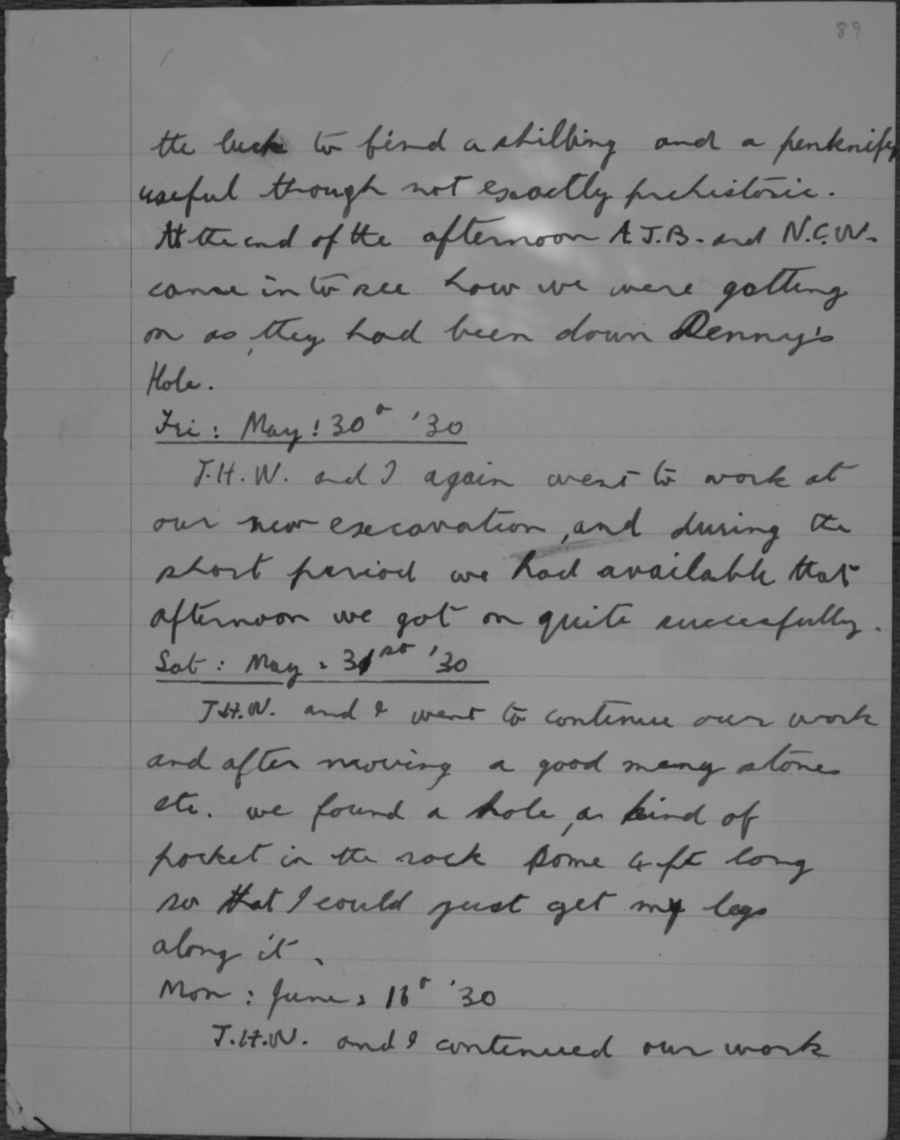 89
the luck to find a shilling and a penknife
useful though not exactly prehistoric.
At the end of the afternoon A.J.B. and N.C.W.
came in to see how we were getting
on as, they had been down Denny's
Hole.
Fri: May: 30 '30
J.H.W. and I again went to work at
our new excavation, and during the
short period we had available that
afternoon we got on quite succesfully.
Sat: May: 31st '30
J.H.W. and I went to continue our work
and after moving a good many stones
etc. we found a hole, a kind of
pocket in the rock some 4 ft long
so that I could just get my legs
along it.
Mon: June: 16 '30
J.H.W. and I continued our work